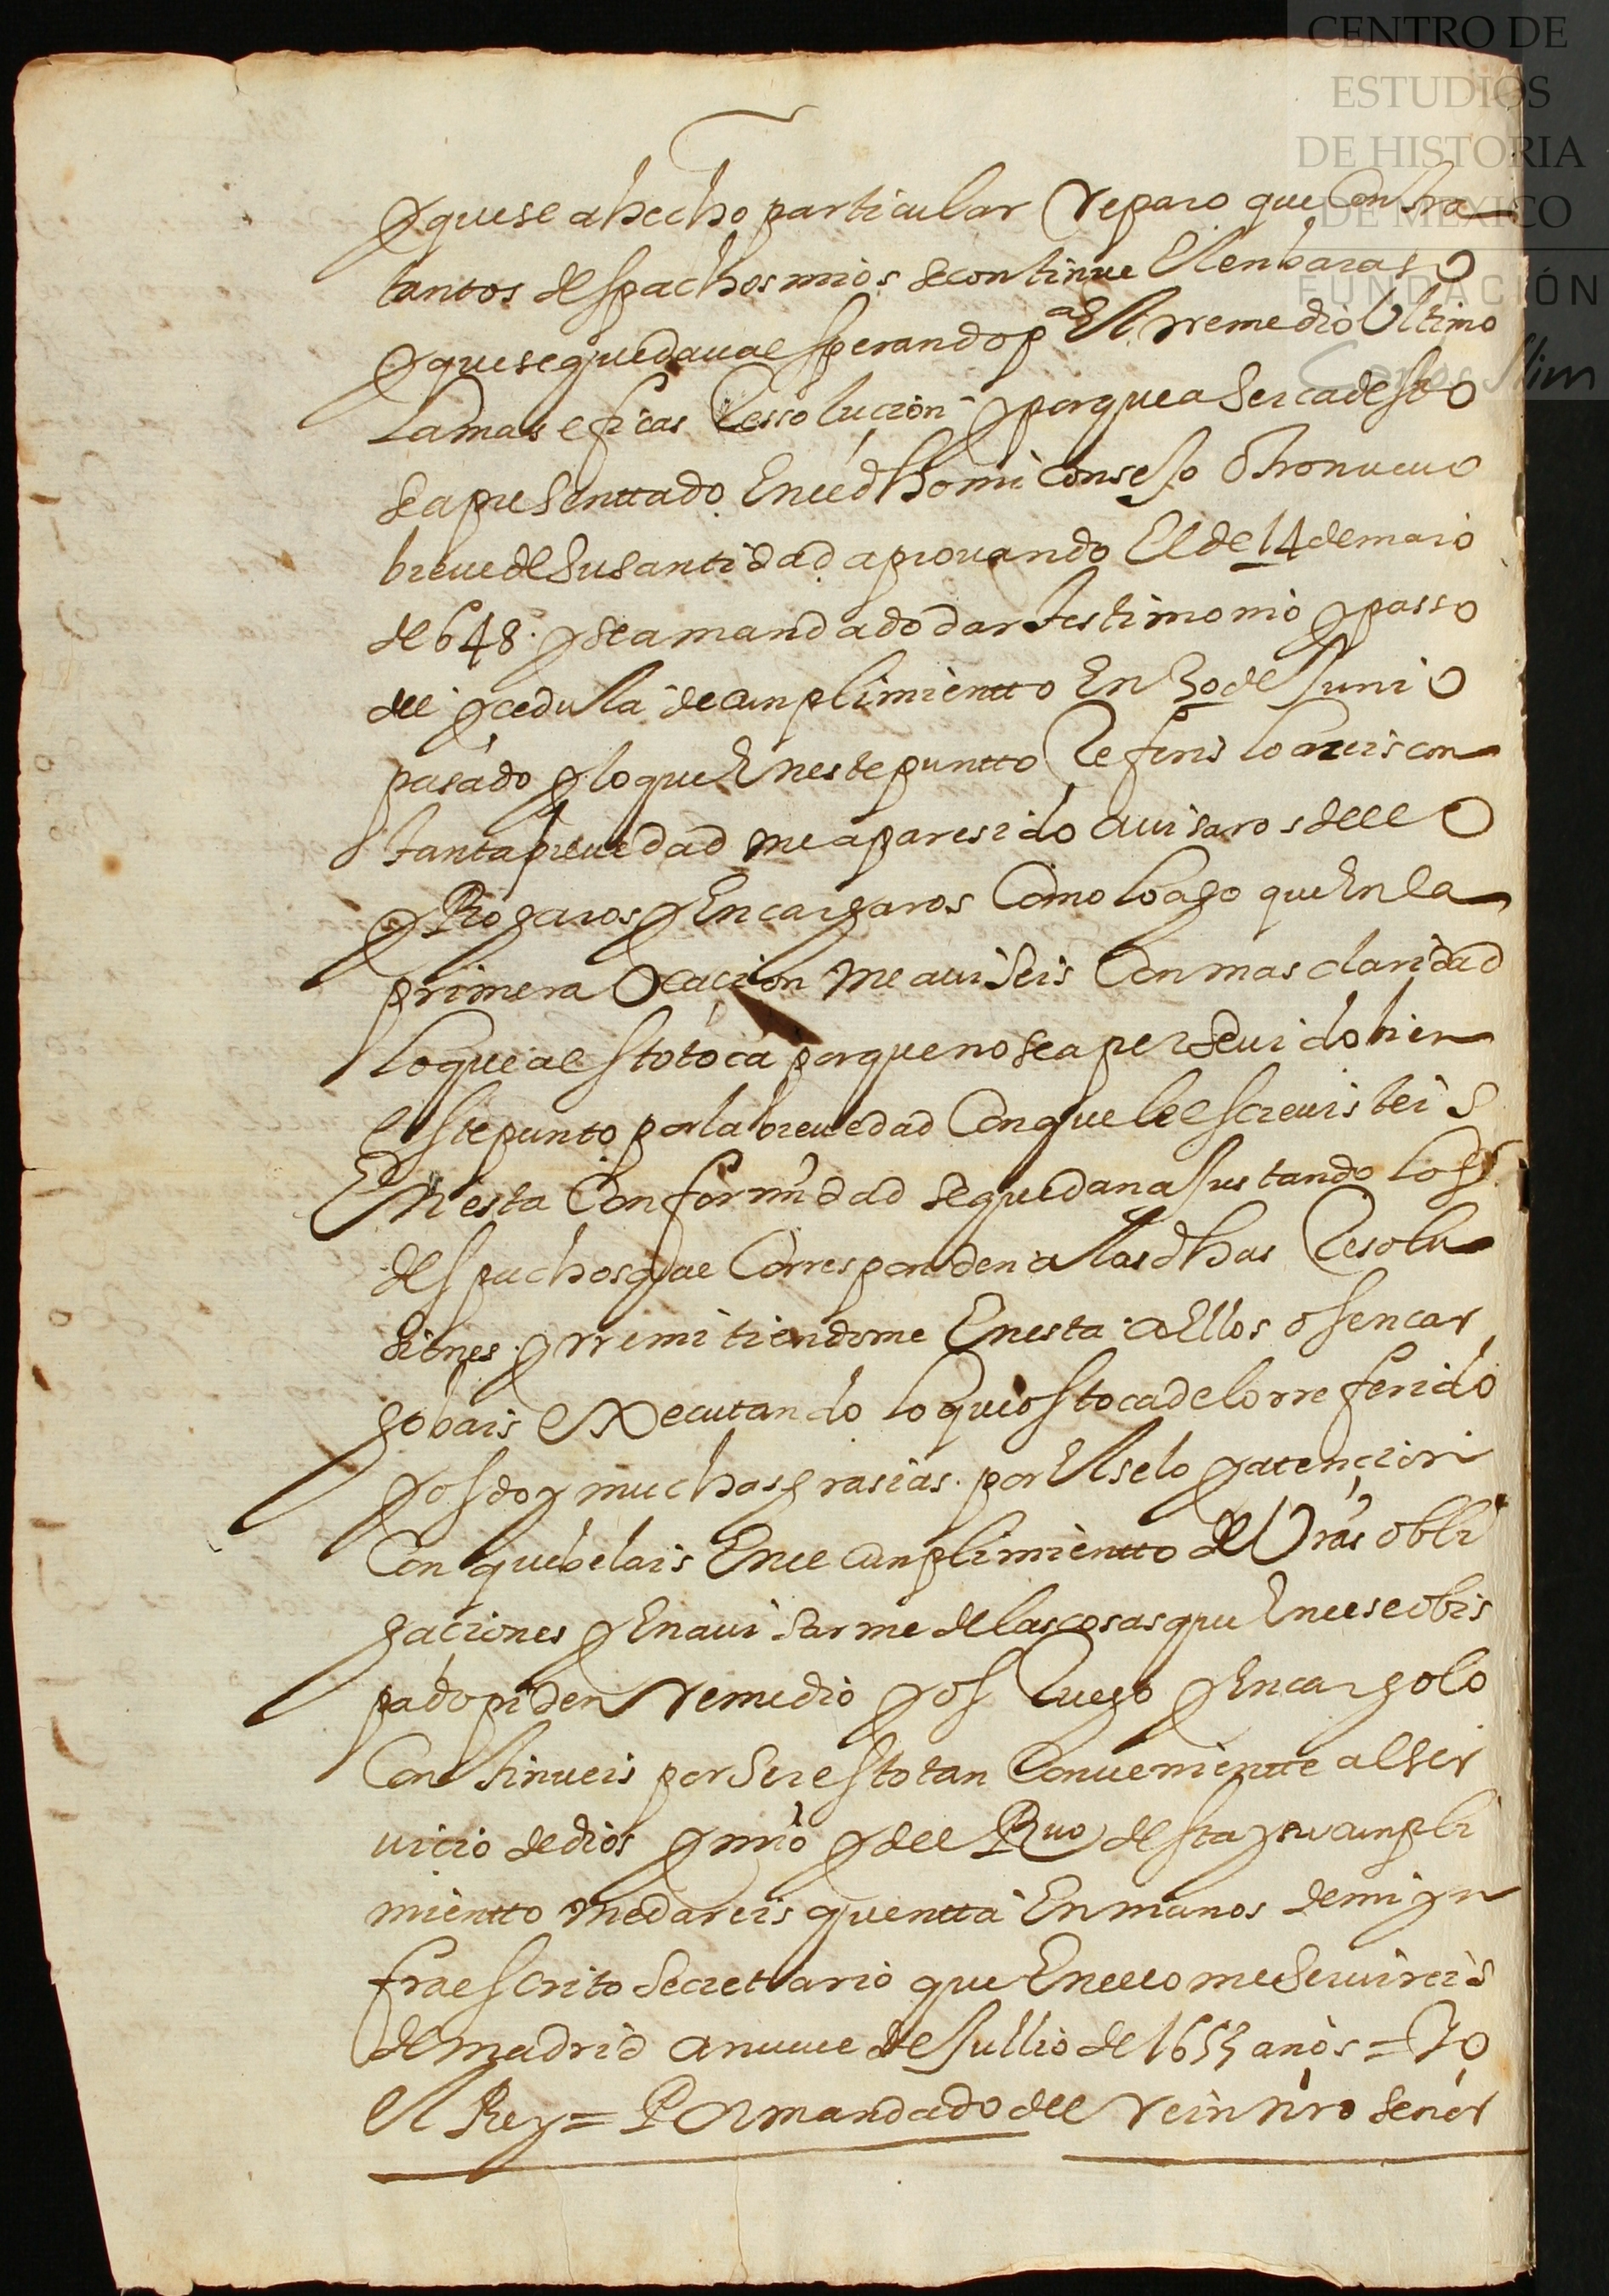 CENTRO DE
ESTUDIOS
DE HISTORIA
DE MEXICO
FUNDACIÓN
Carlos Slim
y que se a hecho particular reparo que contra
tantos despachos mios se continue el enbaraso
y que se quedaua esperando pa el rremedio ultimo
la mas eficas ressolucion y porque a serca desto
se a presenttado en el dho mi consejo otro nueuo
breue de su santidad aprouando el de 14 de maio
de 648. y se a mandado dar testimonio y passo
del y cedula de cunplimientto en 30 de junio
pasado y lo que en este puntto referis lo aueis con
tanta breuedad me a paresido auisaros dello
y Rogaros y encargaros como lo ago que en la
primera ocacion me auiseis con mas claridad
lo que a esto toca porque no se a perseuido bien
este punto por la breuedad con que le escreuisteis
En esta conformidad se quedan ajustando los
despachos que corresponden a las dhas resolu
siones y rremitiendome en esta a ellos os encar
go bais executando lo que os toca de lo rreferido
y os doy muchas grasias por el selo y atencion
con que belais en el cunplimientto de Vras obli
gaciones y en auisarme de las cosas que en ese obis
pado piden remedio y os ruego y encargo lo
continueis por ser esto tan conuenientte al ser
uicio de dios y mio y del Rno desta y su cunpli
mientto me dareis quentta en manos de mi yn
fraescrito secrettario que en ello me seruireis
de madrid a nueue de jullio de 1653 anos = Yo
el Rey = Por mandado del rei nro senor